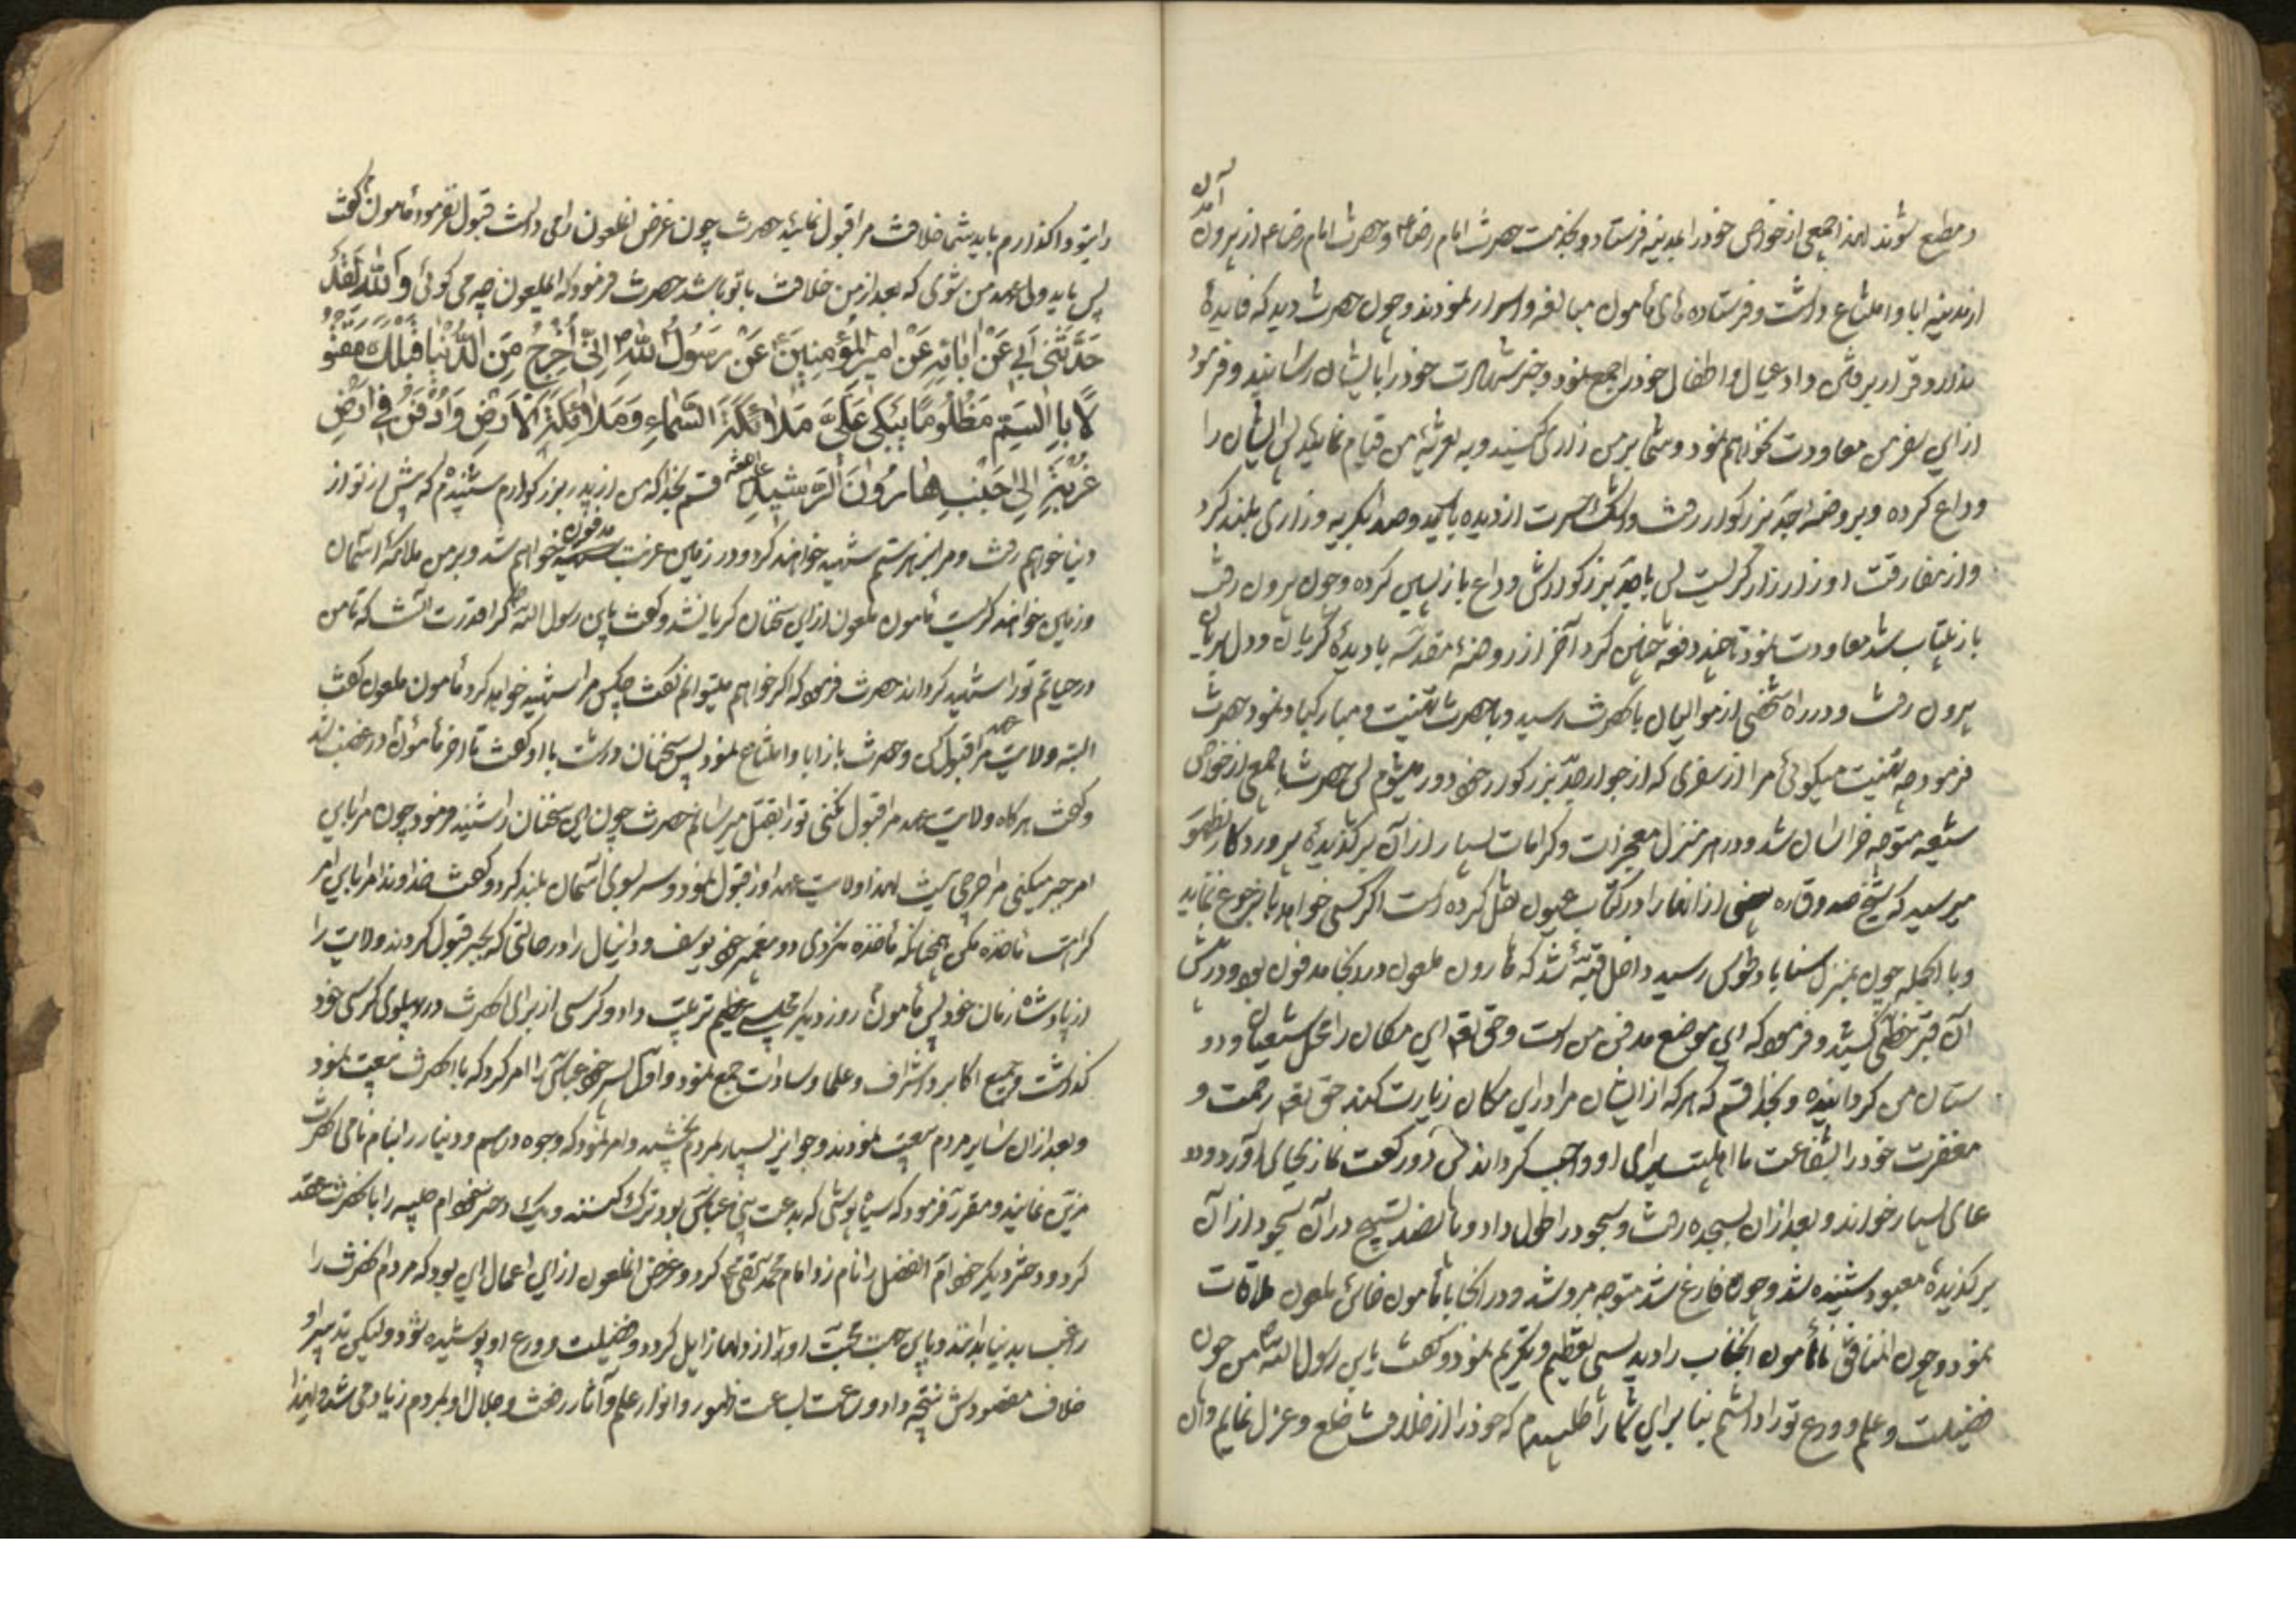 و مطیع شوند لهذا جمعی از خواص خود را بمدینه فرستاد و بخدمت حضرت امام رضا ع و حضرت امام رضا ع از بیرون آمدن
از مدینه ابا و امتناع داشت و فرستاده های مأمون مبالغه و اسرار نمودند و چون حضرت دید که فایدهٔ
ندارد و قرار برفتن داد عیال و اطفال خود را جمع نمود و خبر شهادت خود را بایشان رسانید و فرمود
از این سفر من معاودت نخواهم نمود و شما بر من زاری کنید و به تعزیهٔ من قیام نمائید پس ایشان را
وداع کرده و بروضهٔ جد بزرگوار رفت و اشک حسرت از دیده بارید و صدا بگریه و زاری بلند کرد
و از مفارقت او زار زار گریست پس با جد بزرگوارش وداع باز پسین کرده و چون بیرون رفت
باز بیتاب شد معاودت نمود تا چند دفعه چنین کرد آخر از روضهٔ مقدسه با دیدهٔ گریان و دل بریان
بیرون رفت و در راه شخصی از موالیان با نحضرت رسید و با حضرت تهنیت و مبارکباد نمود حضرت
فرمود چه تهنیت میگوئی مرا از سفری که از جوار جد بزرگوار خود دور میشوم پس حضرت با جمعی از خواص
شیعه متوجه خراسان شد و در هر منزل معجزات و کرامات بسیار از آن برگزیدهٔ پروردکار بظهور
میرسید که شیخ صدوق ره بعضی از انها را در کتاب عیون نقل کرده است اگر کسی خواهد باو رجوع نماید
و با الجمله چون بمنزل سناباد طوس رسید داخل قبهٔ شد که هارون ملعون در انجا مدفون بود و در پیش
آن قبر خطی کشید و فرمود که این موضع مدفن من است و حق تعم این مکان را محل شیعیان و دو
ستان من گردانیده و بخدا قسم که هر که از ایشان مرا در این مکان زیارت کند حق تعم رحمت و
مغفرت خود را بشفاعت ما اهلبیت برای او واجب گرداند پس دو رکعت نماز بجای آورد و د
عای بسیار خواند و بعد از ان بسجده رفت و سجود را طول داد و پانصد تسبیح در آن سجود از آن
برگزیدهٔ معبود شنیده شد و چون فارغ شد متوجه مرو شد و در انجا با مأمون خائن ملعون ملاقات
نمود و چون المنافق مأمون انجناب را دید بسی تعظیم و تکریم نمود و گفت یابن رسول الله ص من چون
فضیلت و علم و ورع تو را دانستم بنا براین شما را طلبیدم که خود را از خلافت خلع و عزل نمایم و آن
را بتو واگذارم باید شما خلافت مرا قبول نمائید حضرت چون غرض انملعون را می دانست قبول نفرمود مأمون گفت
پس باید ولیعهد من شوی که بعد از من خلافت با تو باشد حضرت فرمود که ایملعون چه می گوئی وَاللهِ لَقَدْ
حَدَّثَنی اَبی عَنْ اٰبائِهِ عَنْ اَمیرِ الْمُؤمِنینَ عَنْ رَسُولِ اللهِ ص اِنّی اَخْرُجُ مِنَ الدُّنْیا قَبْلَکَ مَقْتُو
لًا بِالسَّمِّ مَظْلُومًا یَبْکی عَلَیَّ مَلائِکَةُ السَّماءِ وَمَلائِکَةُ الْاَرْضِ وَاُدْفَنُ فی اَرْضِ
غُرْبَةٍ اِلی جَنْبِ هارُونَ الرَّشیدِ قسم بخدا که من از پدر بزرگوارم شنیدم که پیش از تو از
دنیا خواهم رفت و مرا بزهر ستم شهید خواهند کرد و در زمین غربت مدفون خواهم شد و بر من ملائکهٔ اسمان
و زمین خواهند گریست مأمون ملعون از این سخنان گریان شد و گفت یابن رسول الله ص کرا قدرت انست که تا من
در حیاتم تو را شهید گرداند حضرت فرمود که اگر خواهم میتوانم گفت چکس مرا شهید خواهد کرد مأمون ملعون گفت
البته ولایت عهد مرا قبول کن و حضرت باز ابا و امتناع نمود پس سخنان درشت با او گفت تا اخر مأمون در غضب شد
و گفت هرگاه ولایت عهد مرا قبول نکنی تو را بقتل میرسانم حضرت چون این سخنان را شنید فرمود چون مرا باین
امر جبر میکنی مرا حرجی نیست لهذا ولایت عهد او را قبول نمود و سر بسوی آسمان بلند کرد و گفت خداوندا مرا باین امر
کراهت مأخذه مکن همچنانکه مأخذه نکردی دو پیغمبر خود یوسف و دانیال را در حالتی که بجبر قبول کردند ولایت را
از پادشاه زمان خود پس مأمون روز دیگر مجلسی عظیم ترتیب داد و کرسی از برای انحضرت در پهلوی کرسی خود
گذاشت و جمیع اکابر و اشراف و علما و سادات جمع نمود و اول پسر خود عباس را امر کرد که با انحضرت بیعت نمود
و بعد از ان سایر مردم بیعت نمودند و جوایز بسیار بمردم بخشید و امر نمود که وجوه درهم و دینار را بنام نامی انحضرت
مزین نمایند و مقرر فرمود که سیاه پوشی که بدعت بنی عباس بود ترک کنند و یک دختر خود ام حبیبه را با نحضرت عقد
کرد و دختر دیگر خود ام الفضل را نام زد امام محمد تقی ع کرد و غرض انملعون از این اعمال این بود که مردم انحضرت را
راغب بدنیا بدانند و باین جهت محبت او را از دلها زایل گردد و فضیلت و ورع او پوشیده شود و لیکن تدبیر او
خلاف مقصودش نتیجه داد و ساعت بساعت ظهور و انوار علم و آثار رفعت و جلال او بمردم زیاد می شد و لهذا